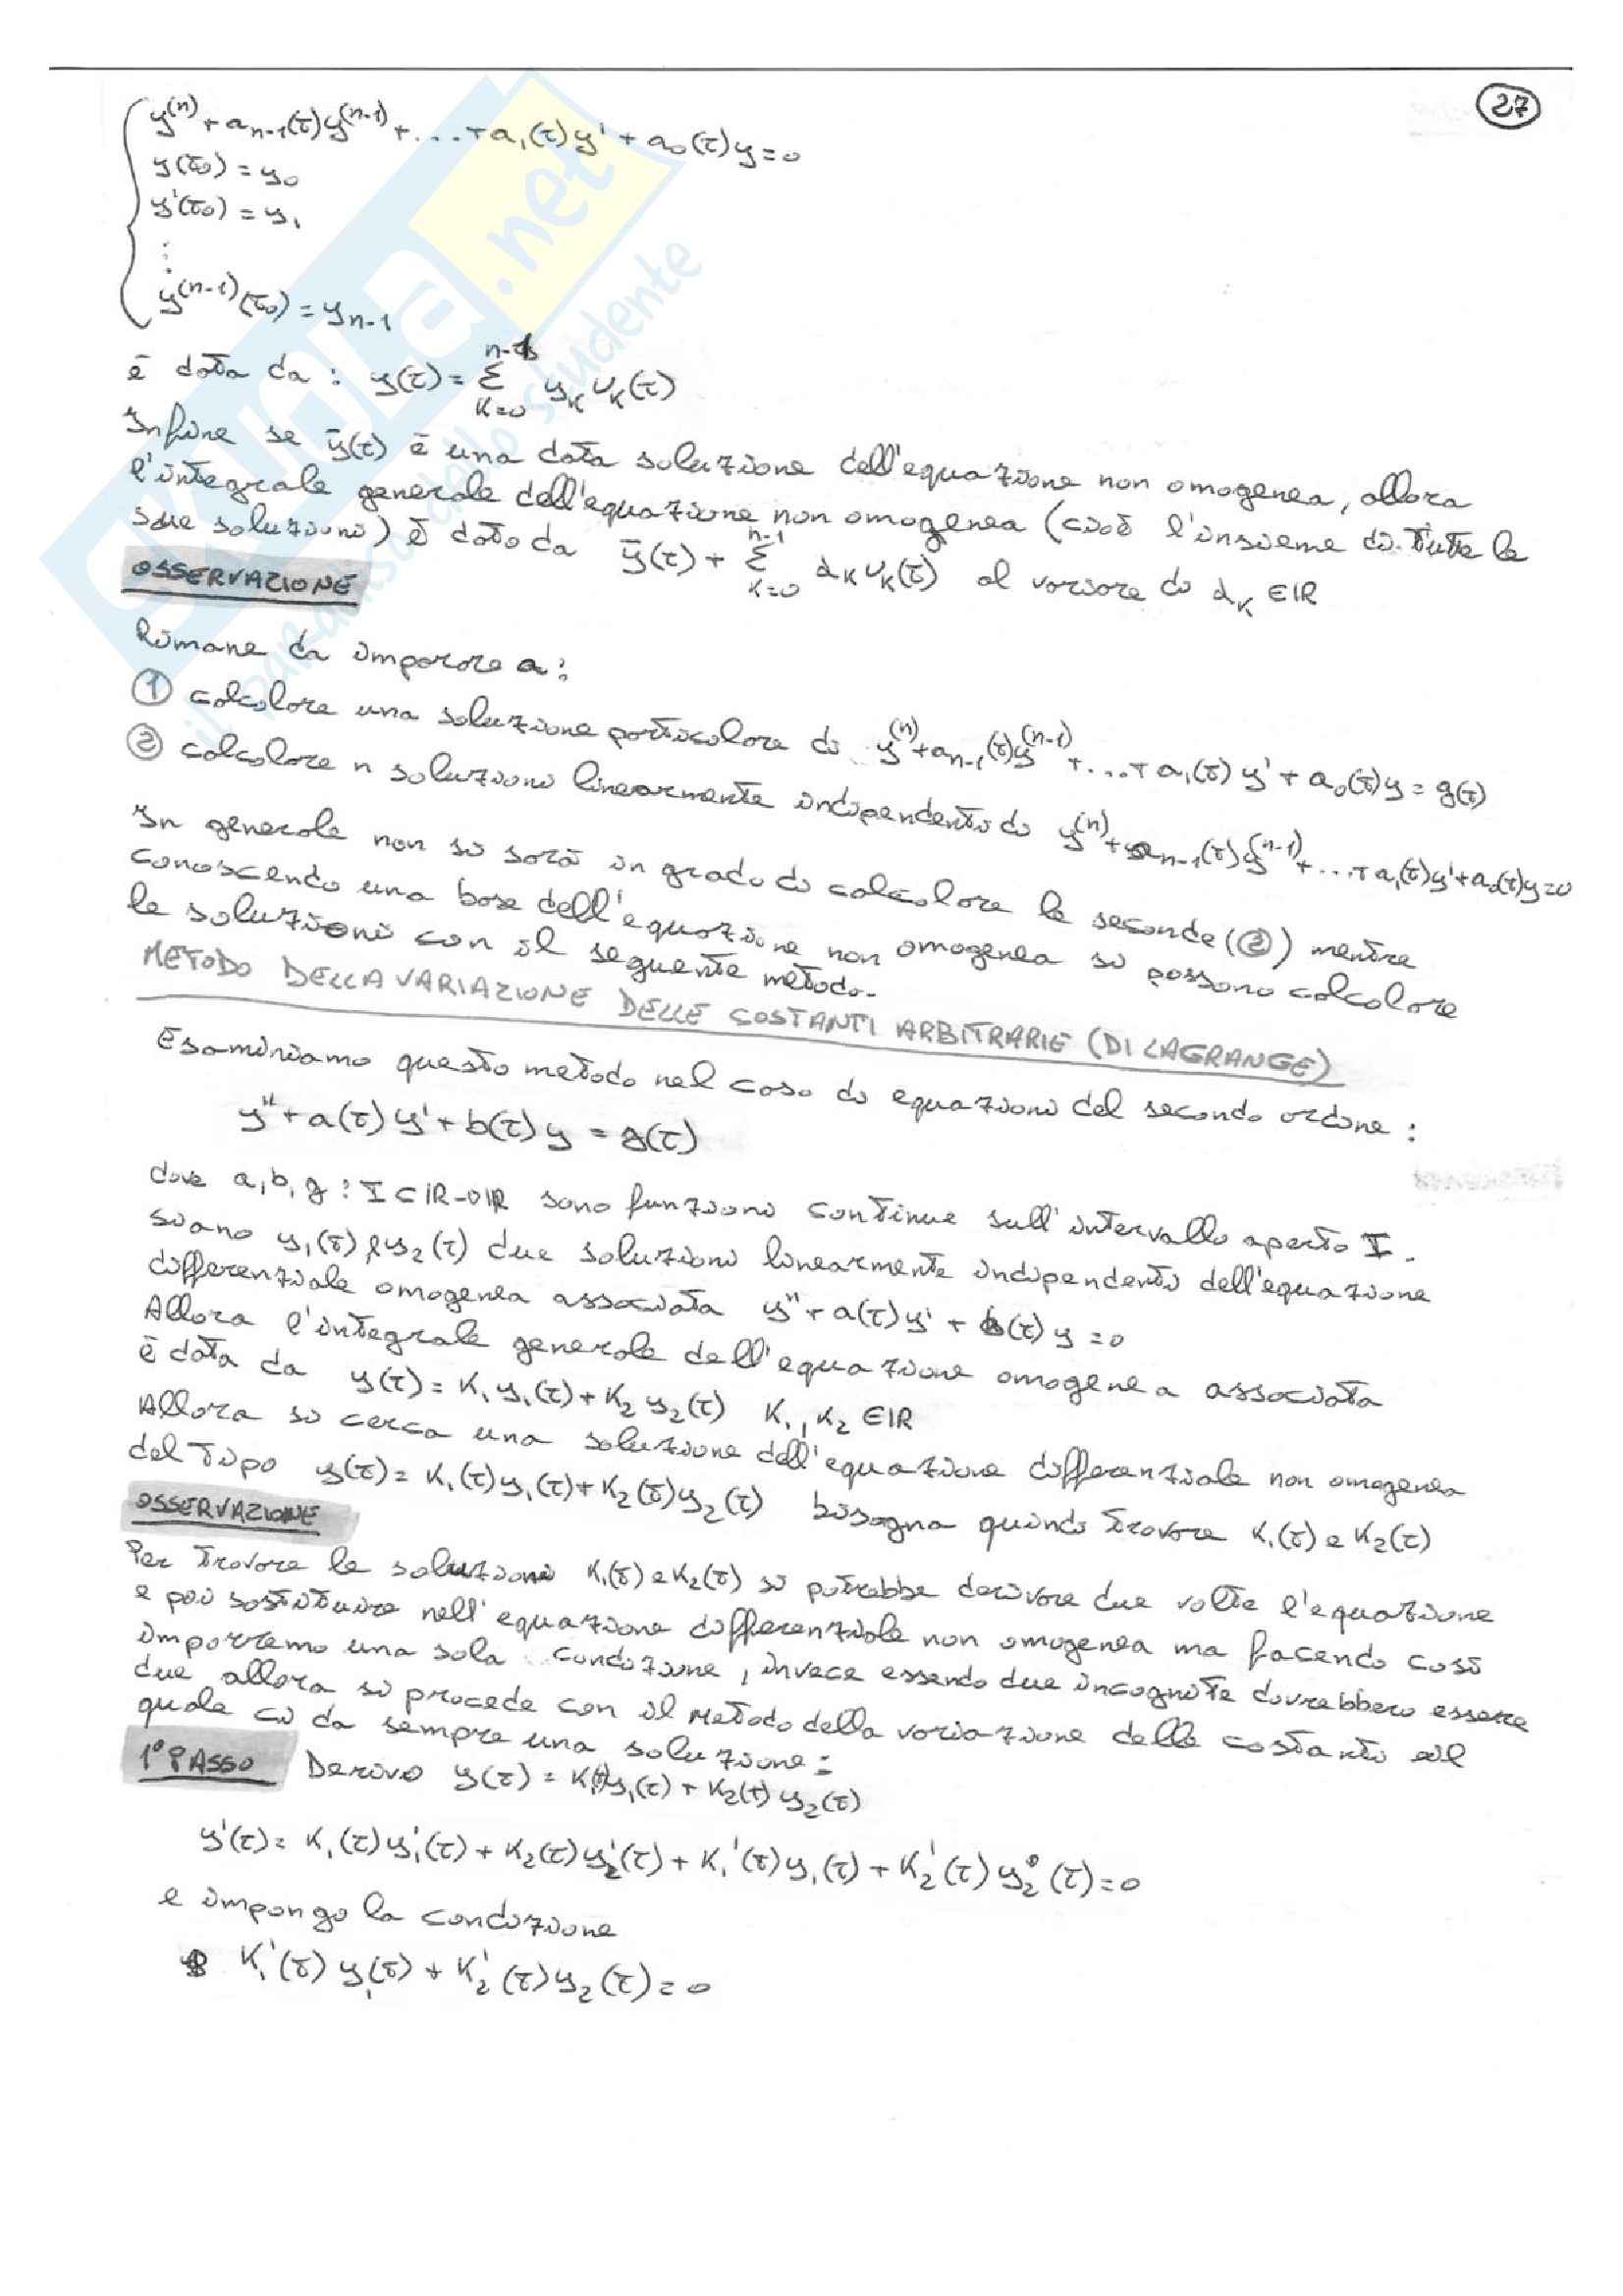 27
y⁽ⁿ⁾ + aₙ₋₁(t)y⁽ⁿ⁻¹⁾ + ... + a₁(t)y' + a₀(t)y = 0
y(t₀) = y₀
y'(t₀) = y₁
⋮
y⁽ⁿ⁻¹⁾(t₀) = yₙ₋₁
è data da : y(t) = Σ_{K=0}^{n-1} y_K u_K(t)
Infine se ȳ(t) è una data soluzione dell'equazione non omogenea, allora
l'integrale generale dell'equazione non omogenea (cioè l'insieme di tutte le
sue soluzioni) è dato da ȳ(t) + Σ_{K=0}^{n-1} α_K u_K(t) al variare di α_K ∈ IR
OSSERVAZIONE
Rimane da imparare a :
① calcolare una soluzione particolare di y⁽ⁿ⁾ + aₙ₋₁(t)y⁽ⁿ⁻¹⁾ + ... + a₁(t)y' + a₀(t)y = g(t)
② calcolare n soluzioni linearmente indipendenti di y⁽ⁿ⁾ + aₙ₋₁(t)y⁽ⁿ⁻¹⁾ + ... + a₁(t)y' + a₀(t)y = 0
In generale non si sarà in grado di calcolare le seconde (②) mentre
conoscendo una base dell'equazione non omogenea si possono calcolare
le soluzioni con il seguente metodo.
METODO DELLA VARIAZIONE DELLE COSTANTI ARBITRARIE (DI LAGRANGE)
Esaminiamo questo metodo nel caso di equazioni del secondo ordine :
y'' + a(t)y' + b(t)y = g(t)
dove a, b, g : I ⊂ IR → IR sono funzioni continue sull'intervallo aperto I.
siano y₁(t) e y₂(t) due soluzioni linearmente indipendenti dell'equazione
differenziale omogenea associata y'' + a(t)y' + b(t)y = 0
Allora l'integrale generale dell'equazione omogenea associata
è data da y(t) = K₁y₁(t) + K₂y₂(t) K₁, K₂ ∈ IR
Allora si cerca una soluzione dell'equazione differenziale non omogenea
del tipo y(t) = K₁(t)y₁(t) + K₂(t)y₂(t) bisogna quindi trovare K₁(t) e K₂(t)
OSSERVAZIONE
Per trovare le soluzioni K₁(t) e K₂(t) si potrebbe derivare due volte l'equazione
e poi sostituire nell'equazione differenziale non omogenea ma facendo così
imporremo una sola condizione, invece essendo due incognite dovrebbero essere
due allora si procede con il metodo della variazione delle costanti il
quale ci da sempre una soluzione :
1° PASSO Derivo y(t) = K₁(t)y₁(t) + K₂(t)y₂(t)
y'(t) = K₁(t)y₁'(t) + K₂(t)y₂'(t) + K₁'(t)y₁(t) + K₂'(t)y₂(t) = 0
e impongo la condizione
K₁'(t)y₁(t) + K₂'(t)y₂(t) = 0
SKUOLA.net
il paradiso dello studente